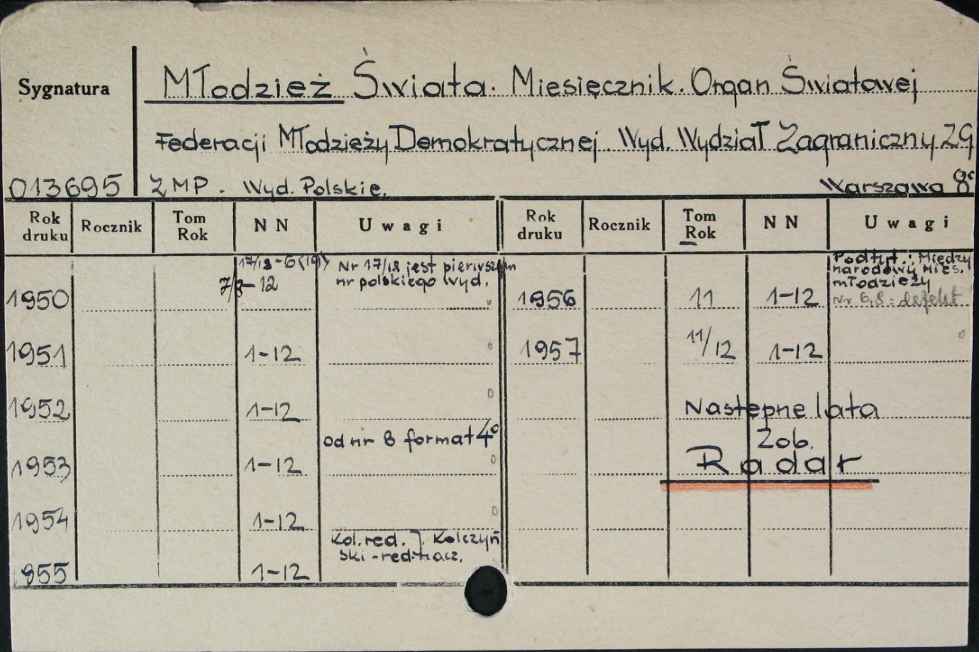 Sygnatura
Młodzież Świata. Miesięcznik. Organ Światowej
Federacji Młodzieży Demokratycznej. Wyd. Wydział Zagraniczny ZG
013695 ZMP. Wyd. Polskie. Warszawa 8°
Rok druku Rocznik Tom Rok NN Uwagi Rok druku Rocznik Tom Rok NN Uwagi
17/18-6(19)
7/8-12
Nr 17/18 jest pierwszym
nr polskiego wyd.
1950
Podtyt.: Między
narodowy mies.
młodzieży
Nr 6,8: defekt
1956 11 1-12
1951 1-12
1957 11/12 1-12
1952 1-12
Następne lata
od nr 8 format 4°
zob.
1953 1-12
Radar
1954 1-12
Kol. red. J. Kolczyń
ski - red. nacz.
955 1-12